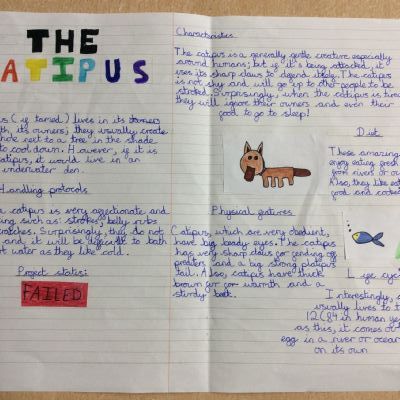 THE
ATIPUS
s (if tamed) lives in its owners
th, its owners; they usually create
hole next to a tree in the shade
to cool down. However, if it is
atipus, it would live in an
underwater den.
Handling protocols
catipus is very affectionate and
ing such as: strokes, belly ribs
ratches. Surprisingly, they do not
and it will be difficult to bath
ot water as they like cold.
Project status:
FAILED
Characteristics
The catipus is a generally gentle creature especially
around humans; but if it's being attacked, it
uses its sharp claws to defend itself. The catipus
is not shy and will go up to other people to be
stroked. Surprisingly, when the catipus is tired
they will ignore their owners and even their
food to go to sleep!
Diet
These amazing
enjoy eating fresh
from rivers or ou
Also, they like eat
food and cooked
Physical features
Catipus, which are very obedient,
have big beady eyes. The catipus
has very sharp claws for fending off
preditors and a big strong platipus
tail. Also, catipus have thick
brown fur for warmth and a
sturdy beak.
Life cycl
Interestingly, a
usually lives to t
12 (84 in human ye
as this, it comes o
egg in a river or ocean
on its own